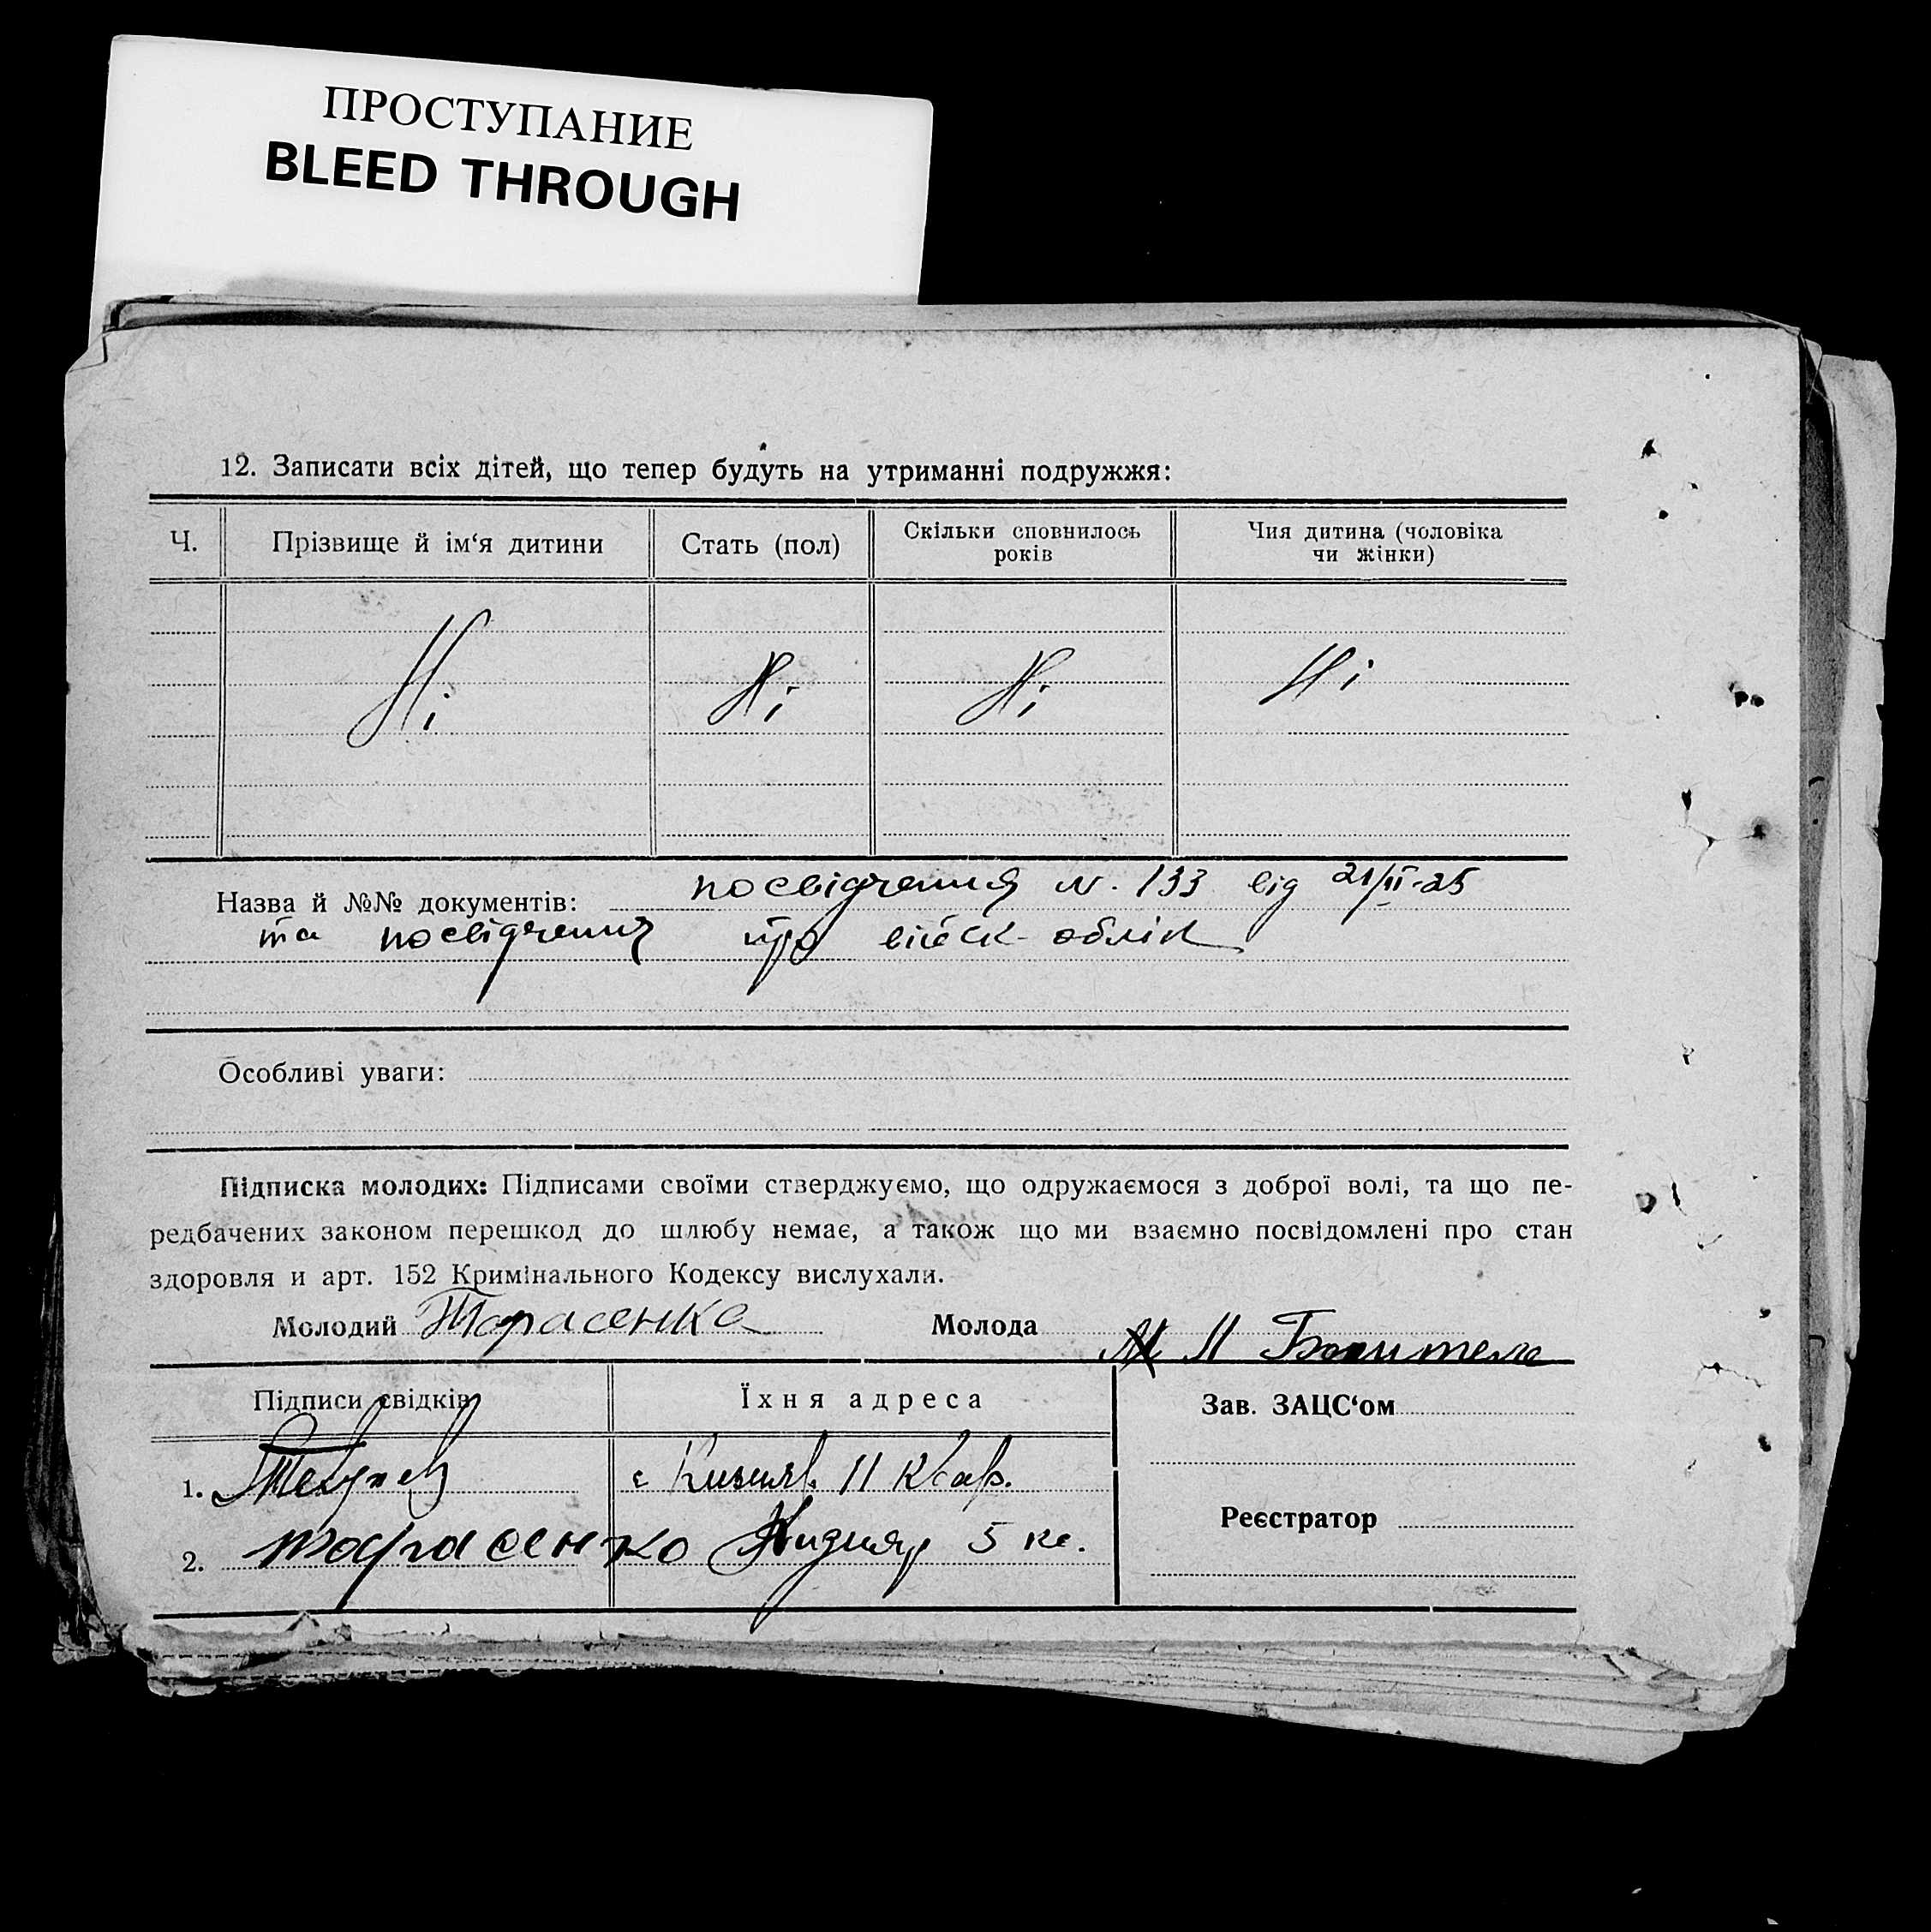 ПРОСТУПАНИЕ
BLEED THROUGH
12. Записати всіх дітей, що тепер будуть на утриманні подружжя:
Ч. Прізвище й ім‘я дитини Стать (пол) Скільки сповнилось років Чия дитина (чоловіка чи жінки)
Ні Ні Ні Ні
Назва й №№ документів: посвідчення N. 133 від 21/II-25
та посвідчення про війск- облік
Особливі уваги:
Підписка молодих: Підписами своїми стверджуємо, що одружаємося з доброї волі, та що пе-
редбачених законом перешкод до шлюбу немає, а також що ми взаємно посвідомлені про стан
здоровля и арт. 152 Кримінального Кодексу вислухали.
Молодий Тарасенко Молода М
Підписи свідків Їхня адреса Зав. ЗАЦС‘ом
1. с 11
Реєстратор
2. Тарасенко 5